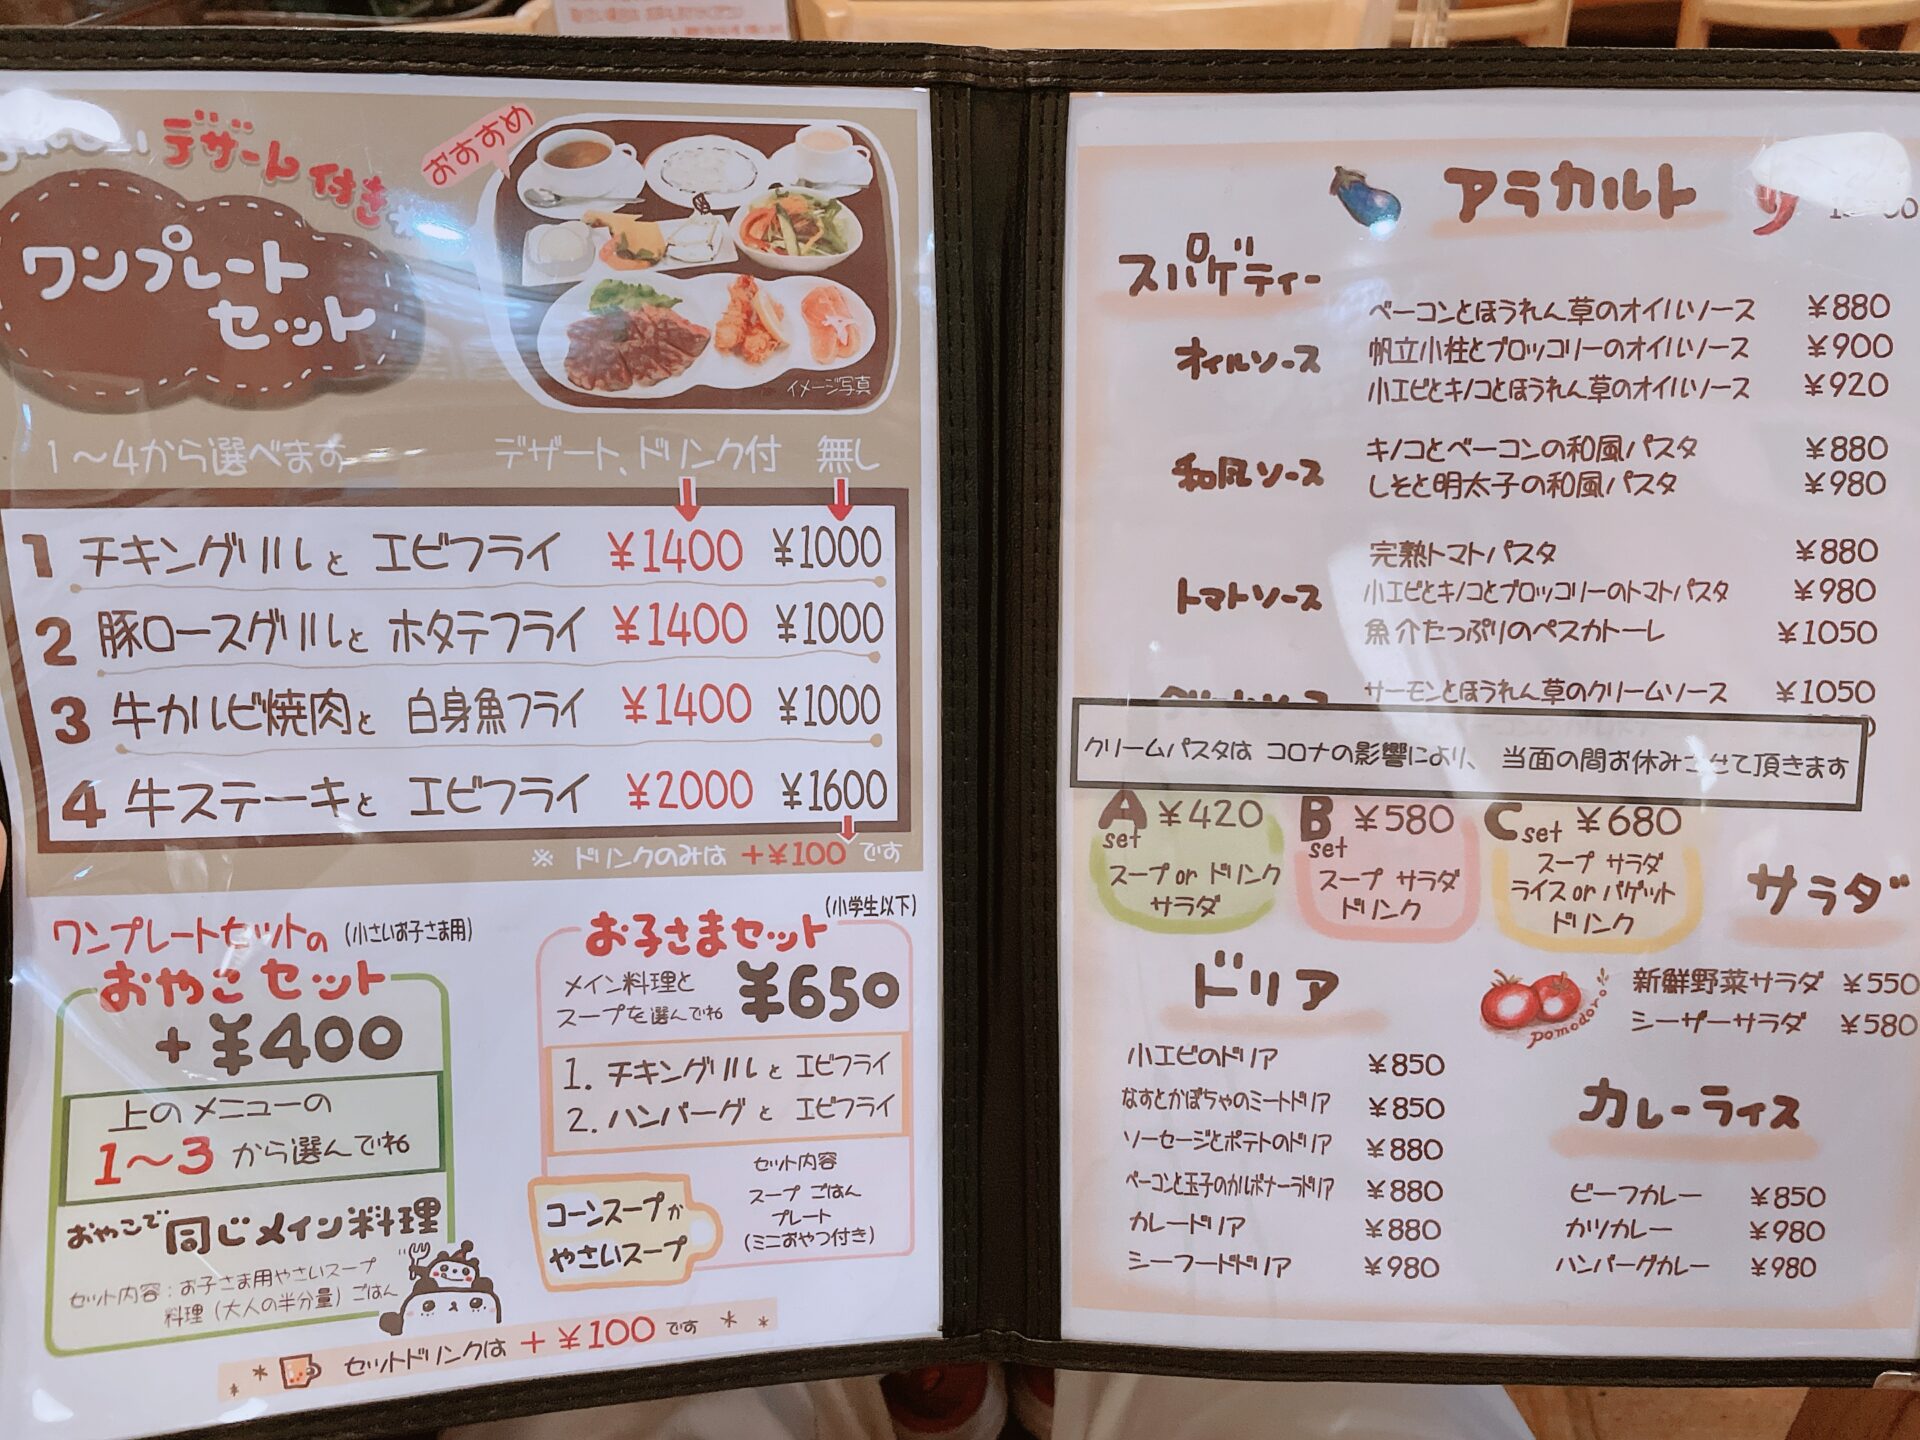 デザート付き
おすすめ
ワンプレート
セット
イメージ写真
1〜4から選べます
デザート、ドリンク付 無し
1 チキングリルと エビフライ ¥1400 ¥1000
2 豚ロースグリルと ホタテフライ ¥1400 ¥1000
3 牛カルビ焼肉と 白身魚フライ ¥1400 ¥1000
4 牛ステーキと エビフライ ¥2000 ¥1600
※ ドリンクのみは +¥100 です
ワンプレートセットの (小さいお子さま用)
おやこセット
+¥400
上のメニューの
1〜3 から選んでね
おやこで同じメイン料理
セット内容:お子さま用やさいスープ
料理(大人の半分量)ごはん
お子さまセット (小学生以下)
メイン料理と
スープを選んでね
¥650
1. チキングリルと エビフライ
2. ハンバーグと エビフライ
コーンスープか
やさいスープ
セット内容
スープ ごはん
プレート
(ミニおやつ付き)
* * セットドリンクは +¥100 です * *
アラカルト
スパゲティー
オイルソース
ベーコンとほうれん草のオイルソース ¥880
帆立小柱とブロッコリーのオイルソース ¥900
小エビとキノコとほうれん草のオイルソース ¥920
和風ソース
キノコとベーコンの和風パスタ ¥880
しそと明太子の和風パスタ ¥980
トマトソース
完熟トマトパスタ ¥880
小エビとキノコとブロッコリーのトマトパスタ ¥980
魚介たっぷりのペスカトーレ ¥1050
サーモンとほうれん草のクリームソース ¥1050
クリームパスタは コロナの影響により、 当面の間お休みさせて頂きます
A set ¥420
スープ or ドリンク
サラダ
B set ¥580
スープ サラダ
ドリンク
C set ¥680
スープ サラダ
ライス or バゲット
ドリンク
サラダ
pomodoro
新鮮野菜サラダ ¥550
シーザーサラダ ¥580
ドリア
小エビのドリア ¥850
なすとかぼちゃのミートドリア ¥850
ソーセージとポテトのドリア ¥880
ベーコンと玉子のカルボナーラドリア ¥880
カレードリア ¥880
シーフードドリア ¥980
カレーライス
ビーフカレー ¥850
カツカレー ¥980
ハンバーグカレー ¥980